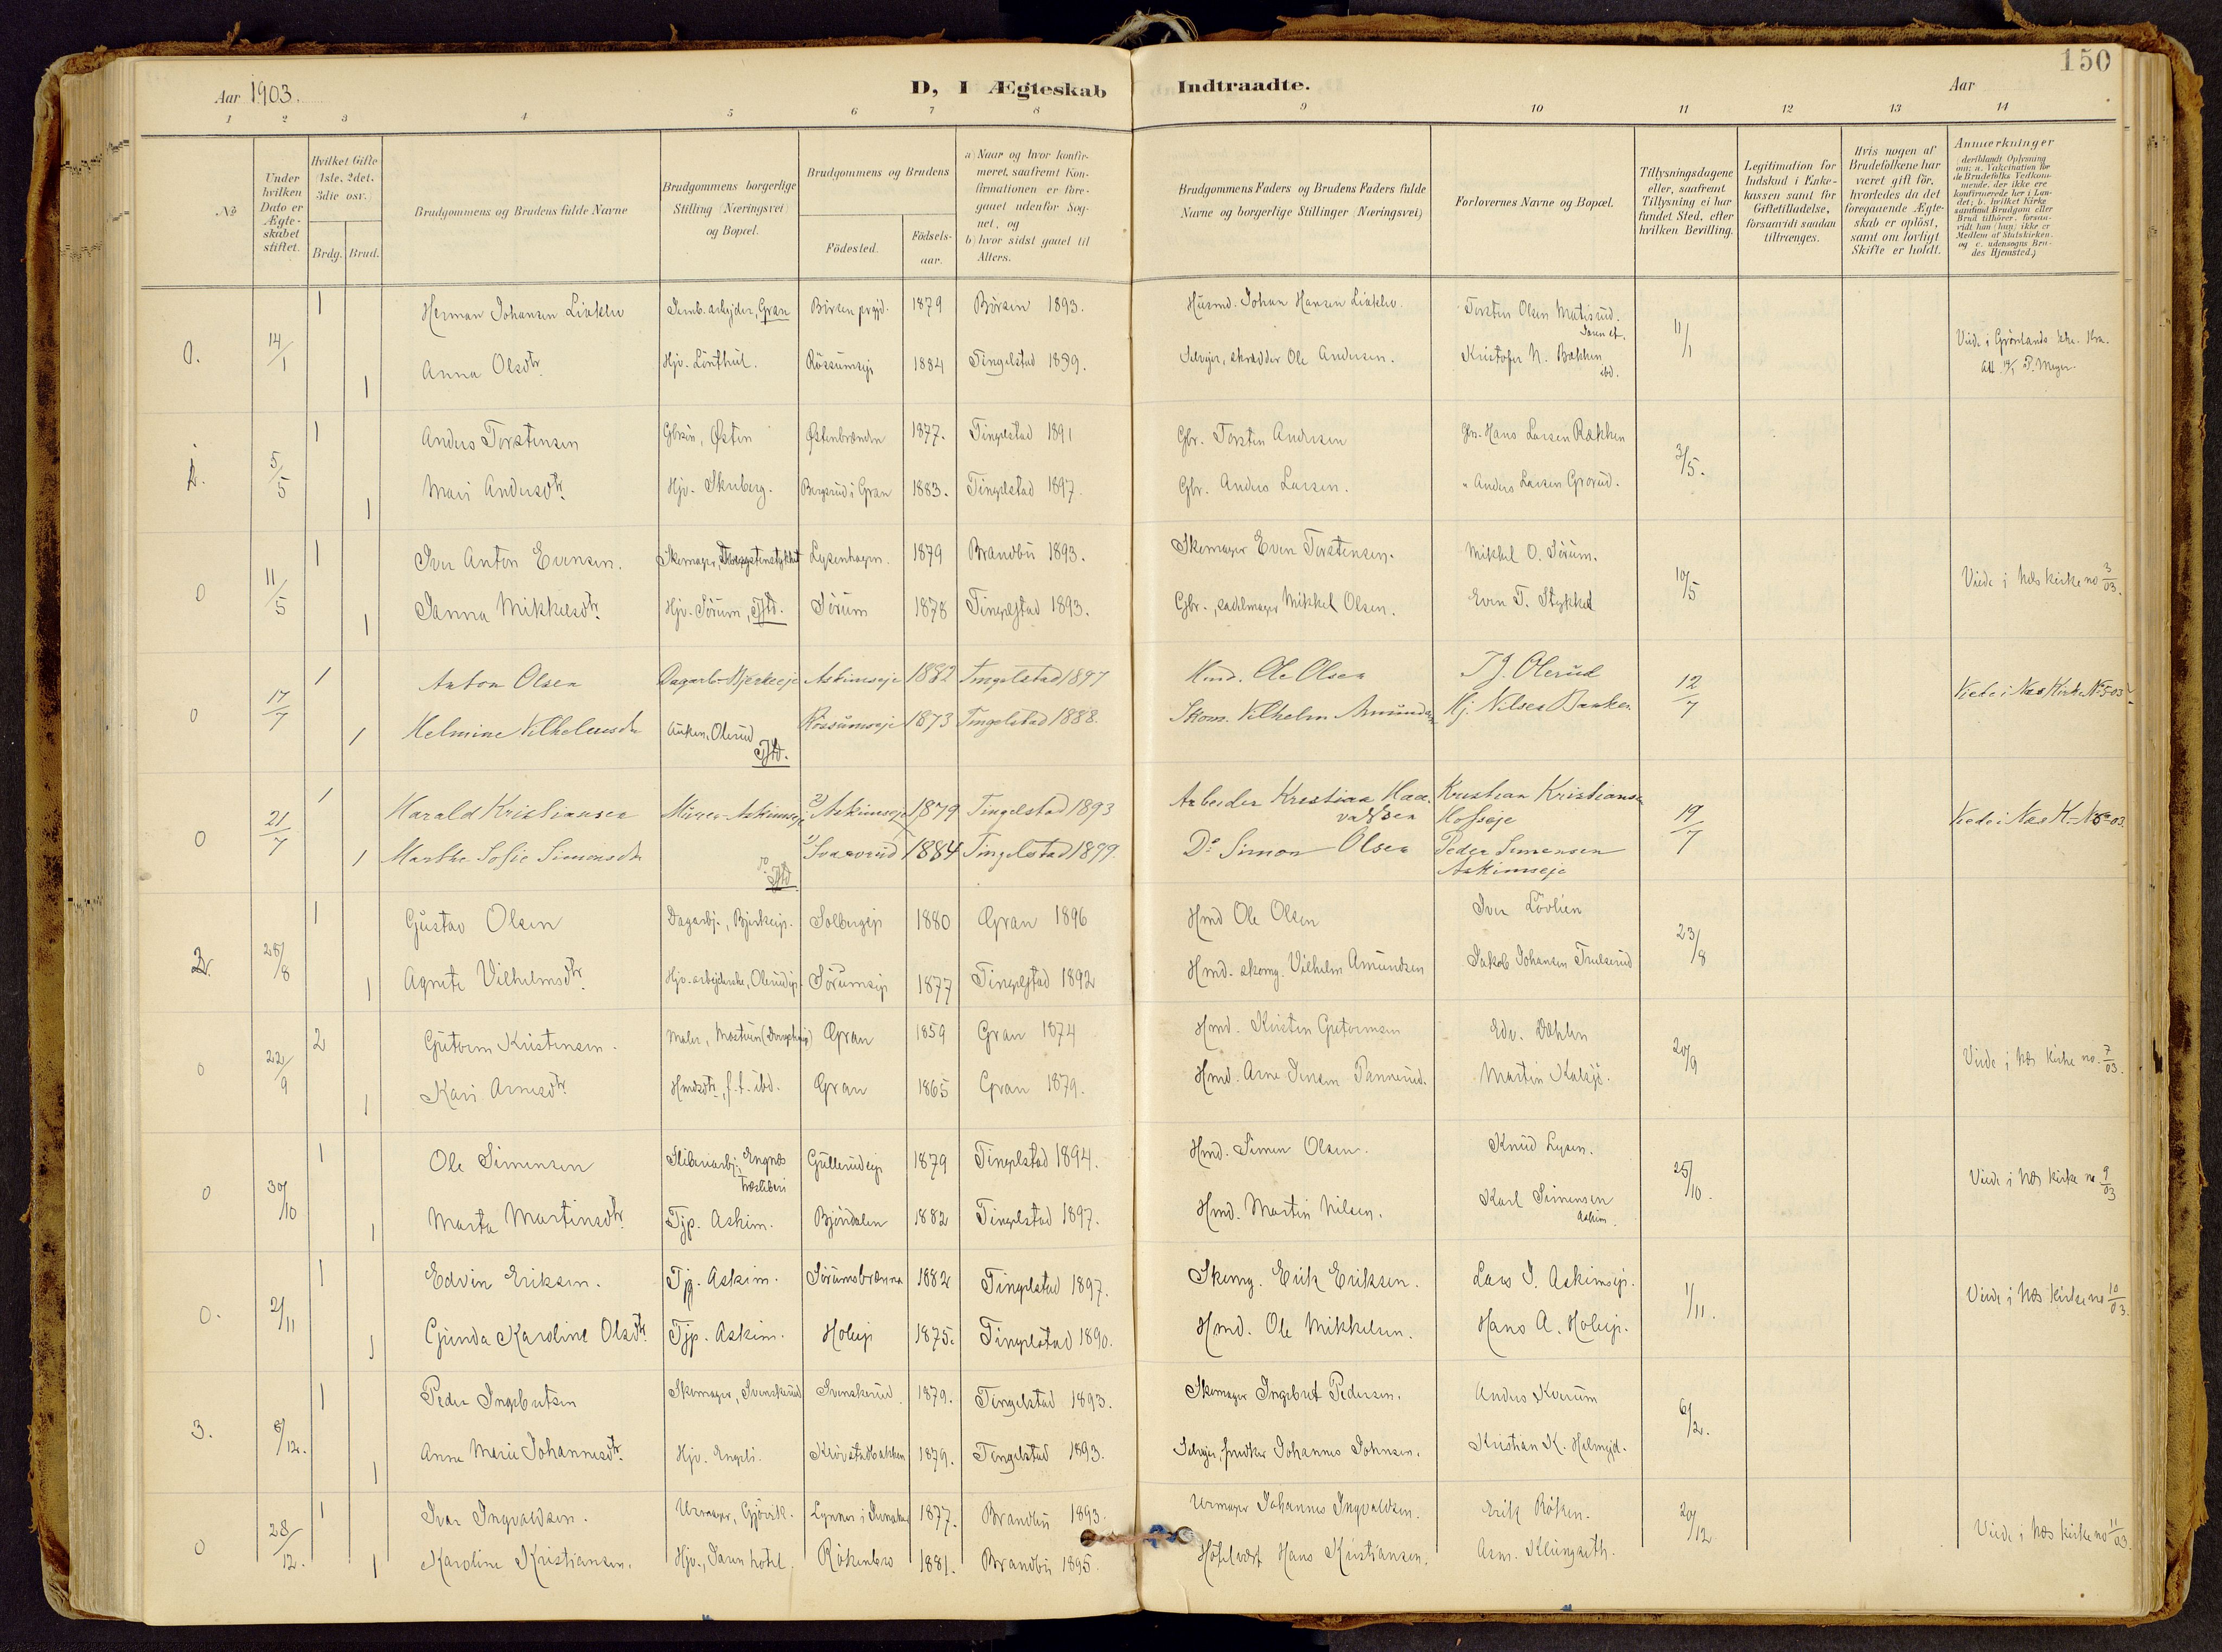 150
Aar 1903.
D, I Ægteskab Indtraadte.
Aar
1 2 3 4 5 6 7 8 9 10 11 12 13 14
No
Under hvilken Dato er Ægteskabet stiftet.
Hvilket Gifte (1ste, 2det, 3die osv.)
Brdg. Brud.
Brudgommens og Brudens fulde Navne
Brudgommens borgerlige Stilling (Næringsvei) og Bopæl.
Brudgommens og Brudens
Födested.
Födselsaar.
a) Naar og hvor konfirmeret, saafremt Konfirmationen er foregaaet udenfor Sognet, og
b) hvor sidst gaaet til Alters.
Brudgommens Faders og Brudens Faders fulde Navne og borgerlige Stillinger (Næringsvei)
Forlovernes Navne og Bopæl.
Tillysningsdagene eller, saafremt Tillysning ei har fundet Sted, efter hvilken Bevilling.
Legitimation for Indskud i Enkekassen samt for Giftetilladelse, forsaavidt saadan tiltrænges.
Hvis nogen af Brudefolkene har været gift för, hvorledes da det foregaaende Ægteskab er oplöst, samt om lovligt Skifte er holdt.
Anmærkninger (deriblandt Oplysning om: a. Vakcination for de Brudefolks Vedkommende, der ikke ere konfirmerede her i Landet; b. hvilket Kirkesamfund Brudgom eller Brud tilhörer, forsaavidt han (hun) ikke er Medlem af Statskirken. og c. udensogns Brudes Hjemsted.)
0. 14/1 1 Herman Johansen Linklev Jernb. arbejder, Gran 1879 Börsen 1893. Husmd. Johan Hansen Linklev. Torsten Olsen Matisrud. 11/1 Viede i Grønlands kke. Kra.
1 Anna Olsdtr. Hjv. 1884 Tingelstad 1899. Selvejer, skrædder Ole Andersen. Kristofer N. Bækken ibd. Att. 14/1 P. Meyer.
1. 5/5 1 Anders Torstensen Gbrsön, Østen Østenbrænden 1877. Tingelstad 1891 Gbr. Torsten Andersen Gbr. Hans Larsen Rækken 3/5.
1 Mari Andersdtr. Hjv. Skuberg. Bergsrud i Gran 1883. Tingelstad 1897. Gbr. Anders Larsen. " Anders Larsen Grorud.
0 11/5 1 Iver Anton Evensen. Skomager, Lysenhagen. 1879 Brandbu 1893. Skomager Even Torstensen. Mikkel O. Sörum. 10/5 Viede i Næs kirke no 3/03.
1 Janna Mikkelsdtr. Hjv. Sörum, Tglstd. Sörum 1878 Tingelstad 1893. Gbr., sadelmager Mikkel Olsen. Even T. Stykket
0 17/7 1 Anton Olsen Dagarb. Bjerkeeje Askimseje 1882 Tingelstad 1897 Hmd. Ole Olsen T. J. Olerud 12/7 Viede i Næs Kirke No 5-03
1 Helmine Vilhelmsdtr Olerud Tglstd. Rössumseje 1873 Tingelstad 1888. Skom. Vilhelm Amundsen Hj. Nilsen Banken
0 21/7 1 Harald Kristiansen Murer Askimseje 2) Askimseje 1879 Tingelstad 1893 Arbeider Kristian Haavaldsen Kristian Kristiansen Hofseje 19/7 Viede i Næs K. No 6-03.
1 Marthe Sofie Simensdtr do Tglstd 1) Svaverud 1884 Tingelstad 1899. Do Simon Olsen Peder Simensen Askimseje
2. 25/8 1 Gustav Olsen Dagarbj., Bjerkeejet. Solbergeje 1880 Gran 1896 Hmd Ole Olsen Iver Lövlien 23/8
1 Agnete Vilhelmsdtr. Hjv. arbejderske, Olerudeje. Sörumseje 1877 Tingelstad 1892 Hmd. skomg. Vilhelm Amundsen Jakob Johansen Trulserud
0 22/9 2 Gutorm Kristensen. Maler, Gran 1859 Gran 1874 Hmd. Kristen Gutormsen Edv. Dæhlen 20/9 Viede i Næs kirke no. 7/03.
1 Kari Arnesdtr. Hmdsdtr., f.t. ibd. Gran 1865 Gran 1879. Hmd. Arne Jensen Pannerud. Martin Kalsjö.
0 30/10 1 Ole Simensen Sliberiarbj., Engnæs træsliberi Gullerudeje 1879 Tingelstad 1894. Hmd. Simen Olsen. Knud Lysen. 25/10. Viede i Næs kirke no 9/03
1 Marta Martinsdtr. Tjp. Askim. Bjöndalen 1882 Tingelstad 1897. Hmd. Martin Nilsen. Karl Simensen Askim.
0. 2/11 1 Edvin Eriksen. Tjg. Askim. Sörumsbrænna 1882 Tingelstad 1897. Skomg. Erik Eriksen. Lars J. Askimseje. 1/11. Viede i Næs kirke no 10/03.
1 Gunda Karoline Olsdtr. Tjp. Askim. Holeje 1875. Tingelstad 1890. Hmd. Ole Mikkelsen. Hans A. Holeje.
3. 8/12. 1 Peder Ingebretsen Skomager, Svenskerud Svenskerud. 1879. Tingelstad 1893. Skomager Ingebret Pedersen. Anders Kverum 6/12.
1 Anne Marie Johannesdtr. Hjv. Engeli. Klövstadbakken 1879. Tingelstad 1893. Selvejer, snedker Johannes Johnsen. Kristian K. Helmejd.
0 28/12. 1 Ivar Ingvaldsen. Urmager, Gjövik. Lynner i Jevnaker 1877. Brandbu 1893. Urmager Johannes Ingvaldsen. Erik Röken. 20/12 Viede i Næs kirke no 11/03.
1 Karoline Kristiansen. Hjv., Jaren hotel. Rökenbro 1881. Brandbu 1895. Hotelvært Hans Kristiansen. Asm. Klungseth.